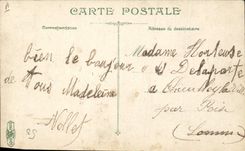 CARTE POSTALE
Correspondance
Adresse du destinataire
bien le bonjour
de tous Madeleine
Nollet
Madame Hortense
Delaporte
à
par Poix
(Somme)